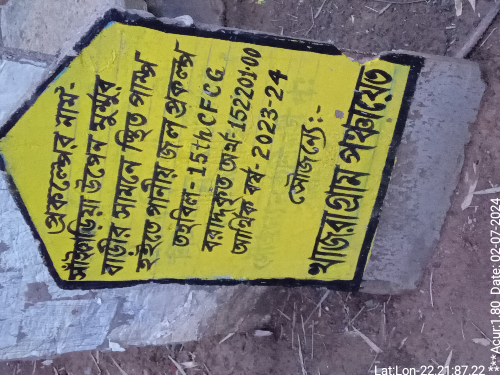 প্রকল্পের নাম:-
সাঁইকাড়িয়া উপেন মুর্ম্মুর
বাড়ীর সামনে স্থিত পাম্প
হইতে পানীয় জল প্রকল্প
তহবিল - 15th CFCG
বরাদ্দকৃত অর্থ- 152201.00
আর্থিক বর্ষ - 2023-24
সৌজন্যে :-
খাজরা গ্রাম পঞ্চায়েত
Lat:Lon-22.21:87.22
***Acur:1.80, Date: 02-07-2024